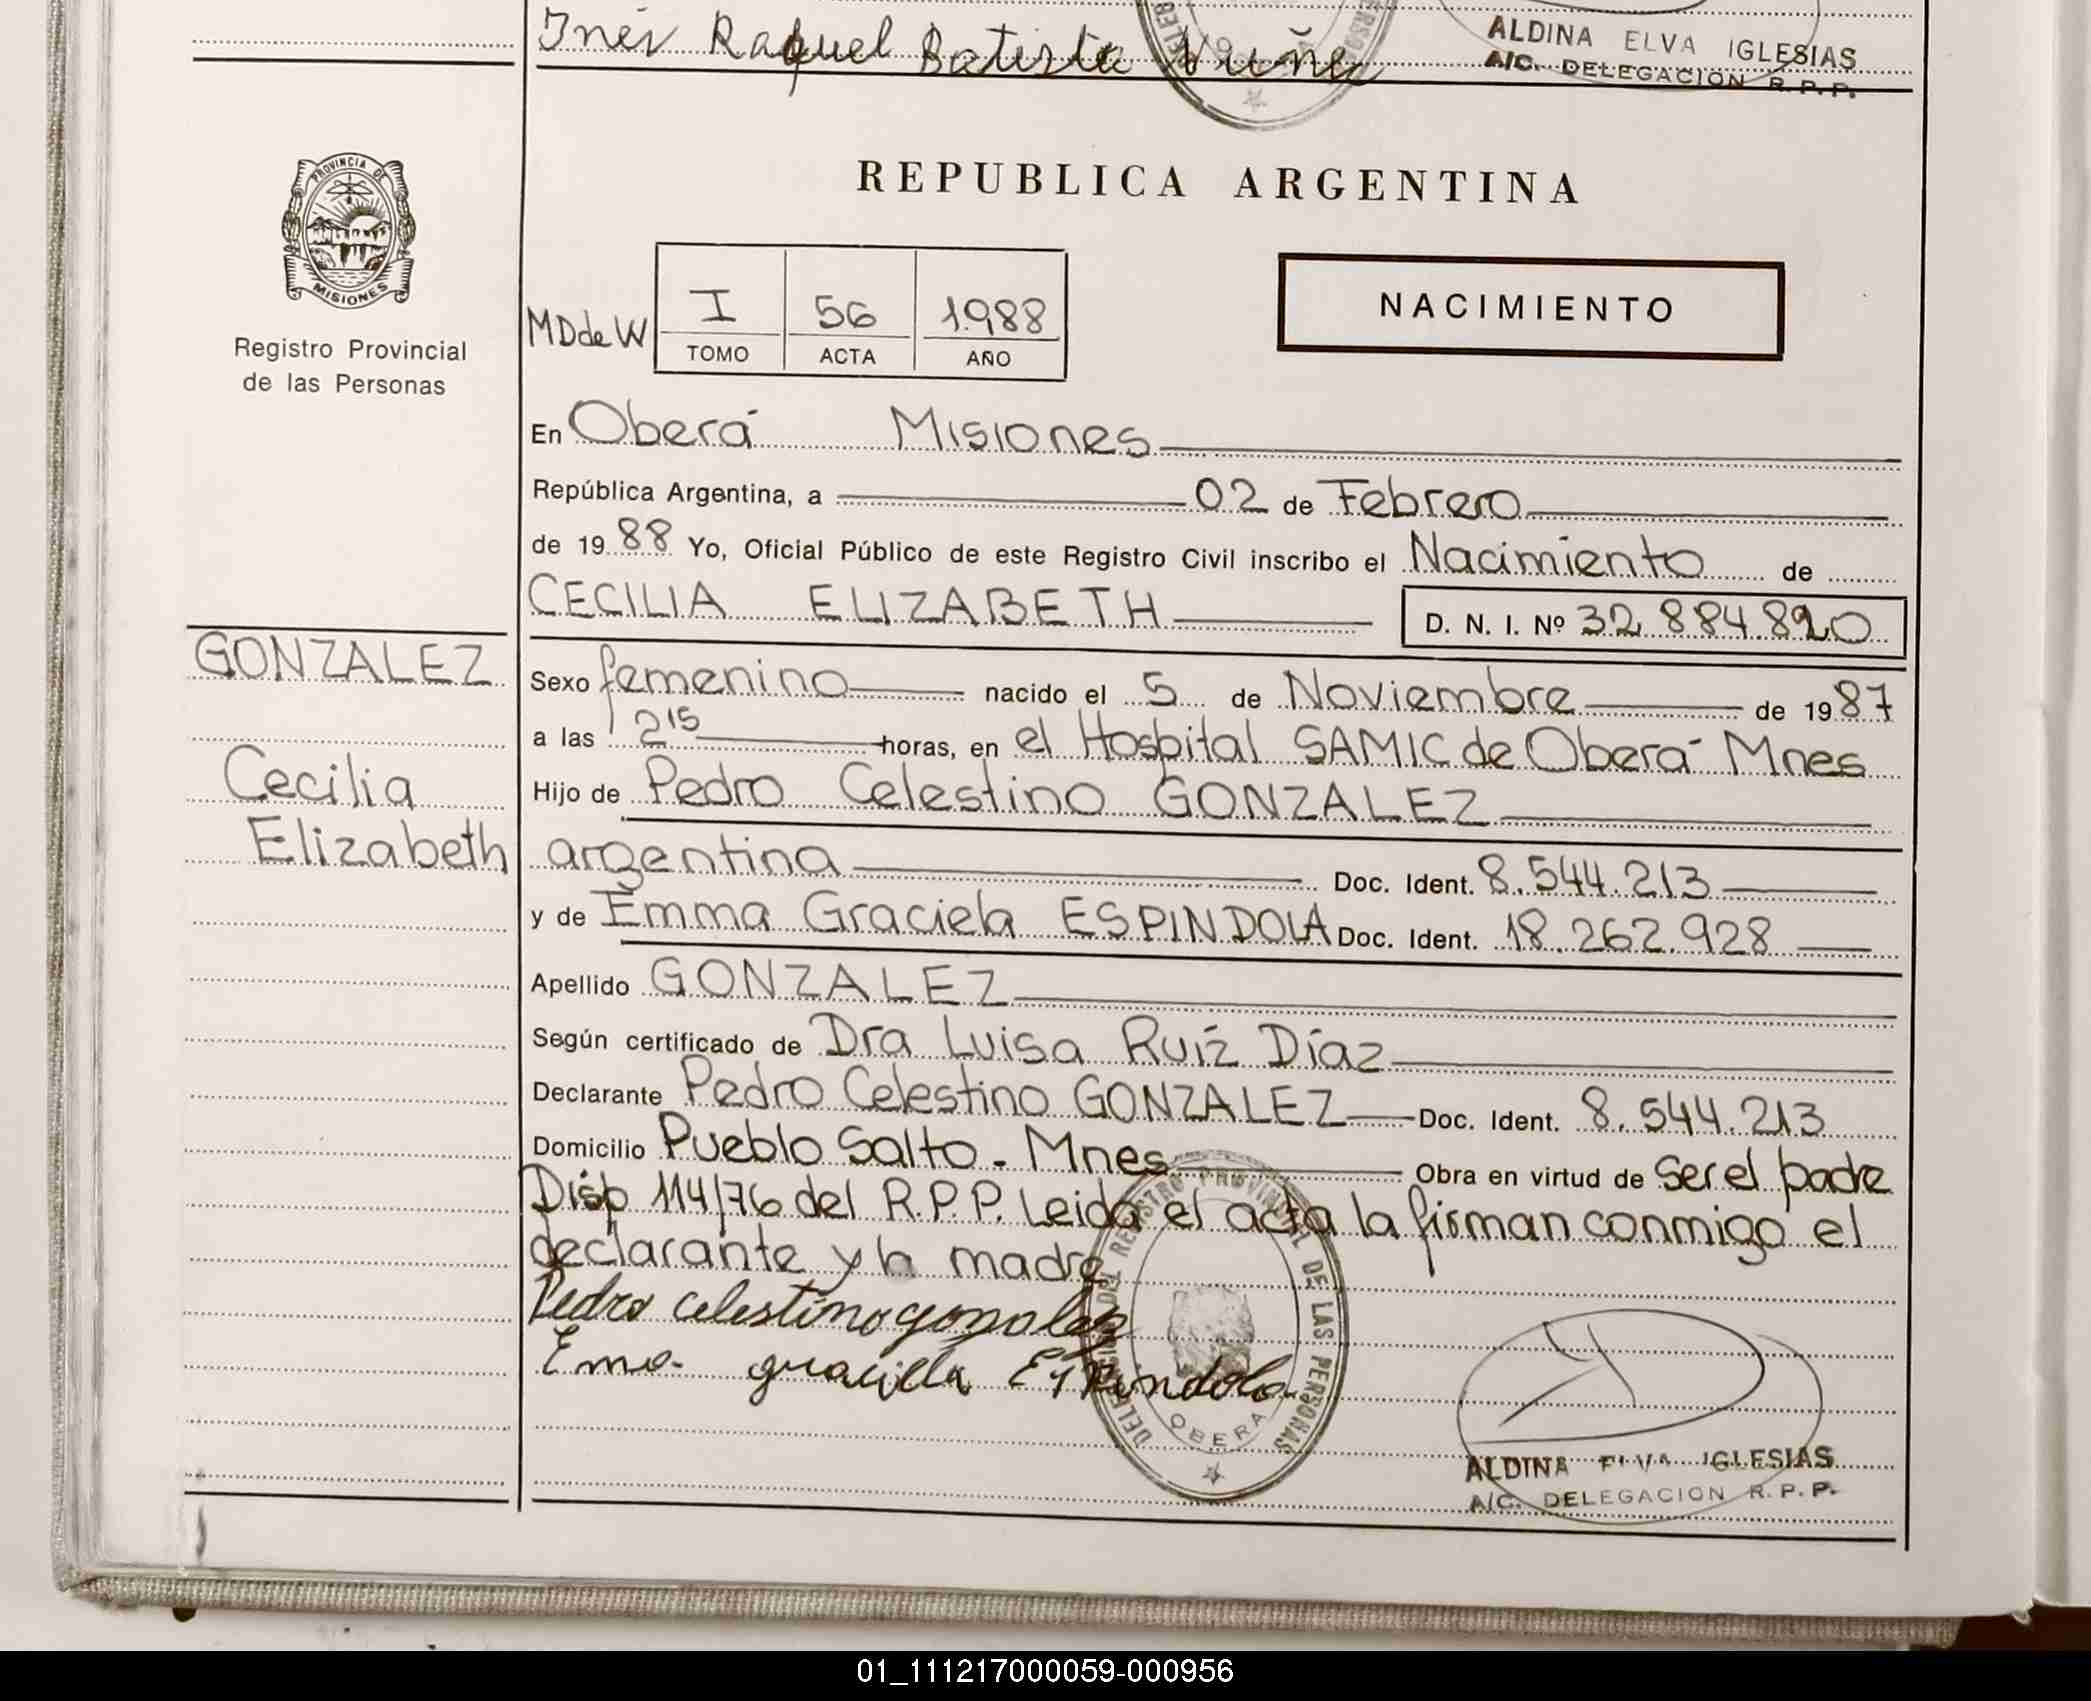 Inés Raquel Batista Nuñez
ALDINA ELVA IGLESIAS
A/C. DELEGACION R.P.P.
PROVINCIA DE
MISIONES
Registro Provincial
de las Personas
REPUBLICA ARGENTINA
MDdeW
I 56 1988
TOMO ACTA AÑO
NACIMIENTO
En Oberá Misiones
República Argentina, a 02 de Febrero
de 1988 Yo, Oficial Público de este Registro Civil inscribo el Nacimiento de
CECILIA ELIZABETH D. N. I. Nº 32.884.820
GONZALEZ
Cecilia
Elizabeth
Sexo femenino nacido el 5 de Noviembre de 1987
a las 2 15 horas, en el Hospital SAMIC de Oberá Mnes
Hijo de Pedro Celestino GONZALEZ
argentina Doc. Ident. 8.544.213
y de Emma Graciela ESPINDOLA Doc. Ident. 18.262.928
Apellido GONZALEZ
Según certificado de Dra Luisa Ruíz Díaz
Declarante Pedro Celestino GONZALEZ Doc. Ident. 8.544.213
Domicilio Pueblo Salto - Mnes Obra en virtud de Ser el padre
Disp 114/76 del R.P.P. Leida el acta la firman conmigo el
declarante y la madre
Pedro celestino gonzalez
Ema graciela Espindola
DELEGACION DEL REGISTRO PROVINCIAL DE LAS PERSONAS
OBERA
ALDINA ELVA IGLESIAS
A/C. DELEGACION R.P.P.
01_111217000059-000956